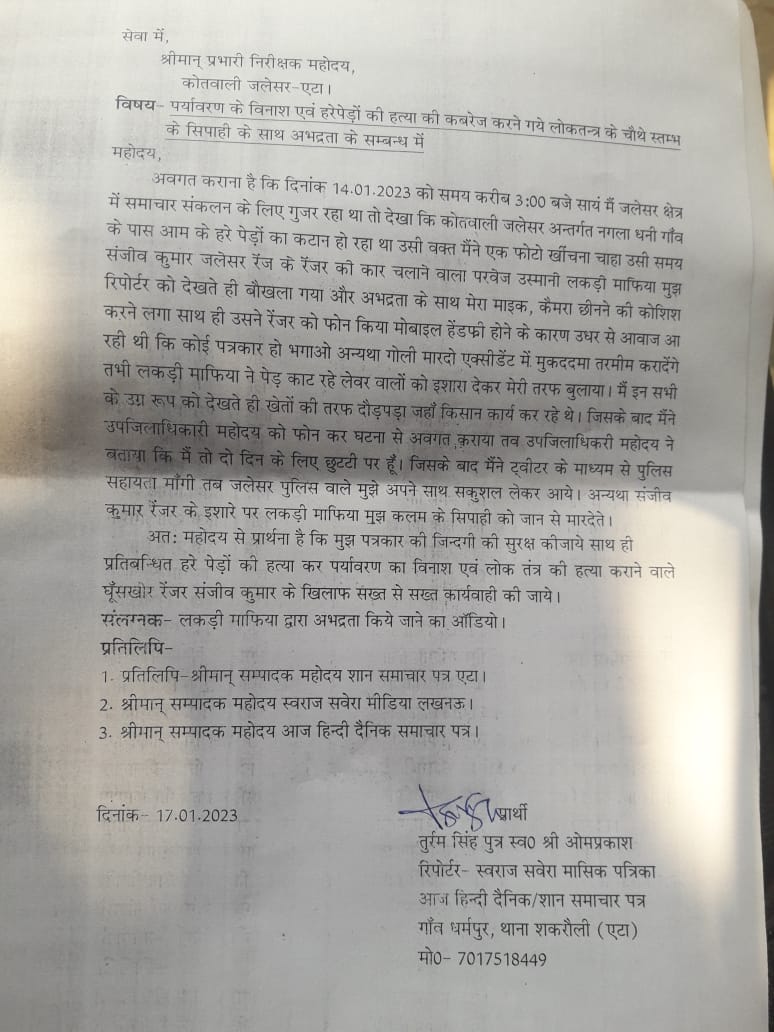 सेवा में,
श्रीमान् प्रभारी निरीक्षक महोदय,
कोतवाली जलेसर-एटा।
विषय- पर्यावरण के विनाश एवं हरेपेड़ों की हत्या की कबरेज करने गये लोकतन्त्र के चौथे स्तम्भ
के सिपाही के साथ अभद्रता के सम्बन्ध में
महोदय,
अवगत कराना है कि दिनांक 14.01.2023 को समय करीब 3:00 बजे सायं मैं जलेसर क्षेत्र
में समाचार संकलन के लिए गुजर रहा था तो देखा कि कोतवाली जलेसर अन्तर्गत नगला धनी गाँव
के पास आम के हरे पेड़ों का कटान हो रहा था उसी वक्त मैंने एक फोटो खींचना चाहा उसी समय
संजीव कुमार जलेसर रेंज के रेंजर की कार चलाने वाला परवेज उस्मानी लकड़ी माफिया मुझ
रिपोर्टर को देखते ही बौखला गया और अभद्रता के साथ मेरा माइक, कैमरा छीनने की कोशिश
करने लगा साथ ही उसने रेंजर को फोन किया मोबाइल हेंडफ्री होने के कारण उधर से आवाज आ
रही थी कि कोई पत्रकार हो भगाओ अन्यथा गोली मारदो एक्सीडेंट में मुकददमा तरमीम करादेंगे
तभी लकड़ी माफिया ने पेड़ काट रहे लेवर वालों को इशारा देकर मेरी तरफ बुलाया। मैं इन सभी
के उग्र रूप को देखते ही खेतों की तरफ दौड़पड़ा जहाँ किसान कार्य कर रहे थे। जिसके बाद मैंने
उपजिलाधिकारी महोदय को फोन कर घटना से अवगत कराया तव उपजिलाधिकरी महोदय ने
बताया कि मैं तो दो दिन के लिए छुटटी पर हूँ। जिसके बाद मैंने ट्वीटर के माध्यम से पुलिस
सहायता माँगी तब जलेसर पुलिस वाले मुझे अपने साथ सकुशल लेकर आये। अन्यथा संजीव
कुमार रेंजर के इशारे पर लकड़ी माफिया मुझ कलम के सिपाही को जान से मारदेते।
अतः महोदय से प्रार्थना है कि मुझ पत्रकार की जिन्दगी की सुरक्ष कीजाये साथ ही
प्रतिबन्धित हरे पेड़ों की हत्या कर पर्यावरण का विनाश एवं लोक तंत्र की हत्या कराने वाले
घूँसखोर रेंजर संजीव कुमार के खिलाफ सख्त से सख्त कार्यवाही की जाये।
संलग्नक- लकड़ी माफिया द्वारा अभद्रता किये जाने का ऑडियो।
प्रतिलिपि-
1. प्रतिलिपि-श्रीमान् सम्पादक महोदय शान समाचार पत्र एटा।
2. श्रीमान् सम्पादक महोदय स्वराज सवेरा मीडिया लखनऊ।
3. श्रीमान् सम्पादक महोदय आज हिन्दी दैनिक समाचार पत्र।
दिनांक- 17.01.2023
प्रार्थी
तुर्रम सिंह पुत्र स्व0 श्री ओमप्रकाश
रिपोर्टर- स्वराज सवेरा मासिक पत्रिका
आज हिन्दी दैनिक/शान समाचार पत्र
गाँव धर्मपुर, थाना शकरौली (एटा)
मो0- 7017518449